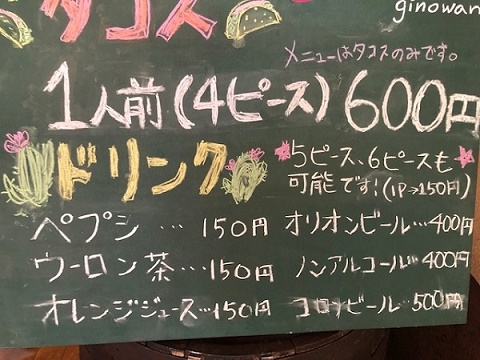 タコス
ginowan
メニューはタコスのみです。
1人前(4ピース)600円
ドリンク
5ピース、6ピースも
可能です!(1P→150円)
ペプシ…150円
ウーロン茶…150円
オレンジジュース…150円
オリオンビール…400円
ノンアルコール…400円
コロナビール…500円